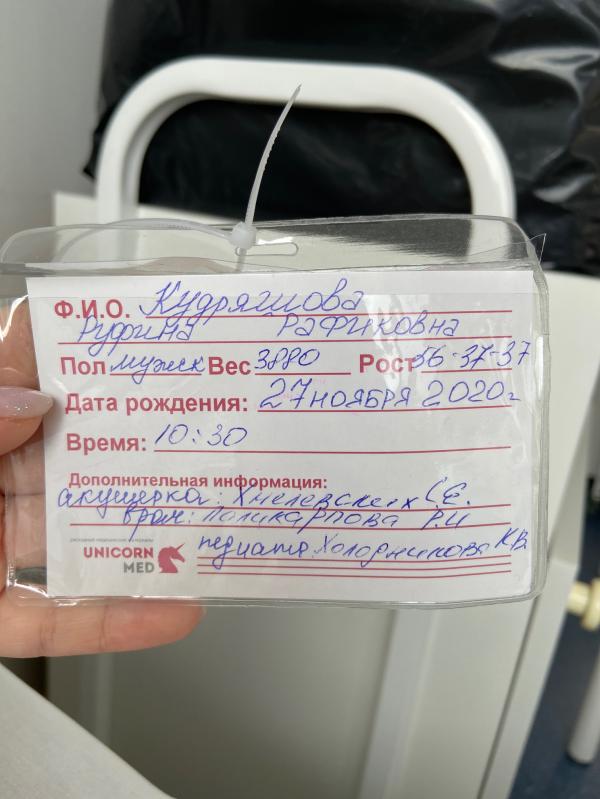 Ф.И.О. Кудряшова
Руфина Рафиковна
Пол мужск Вес 3880 Рост 56-37-37
Дата рождения: 27 ноября 2020г
Время: 10:30
Дополнительная информация:
акушерка: Хмелевских С.Е.
врач: Поликарпова Р.И
педиатр Холодникова К.В.
UNICORN
MED